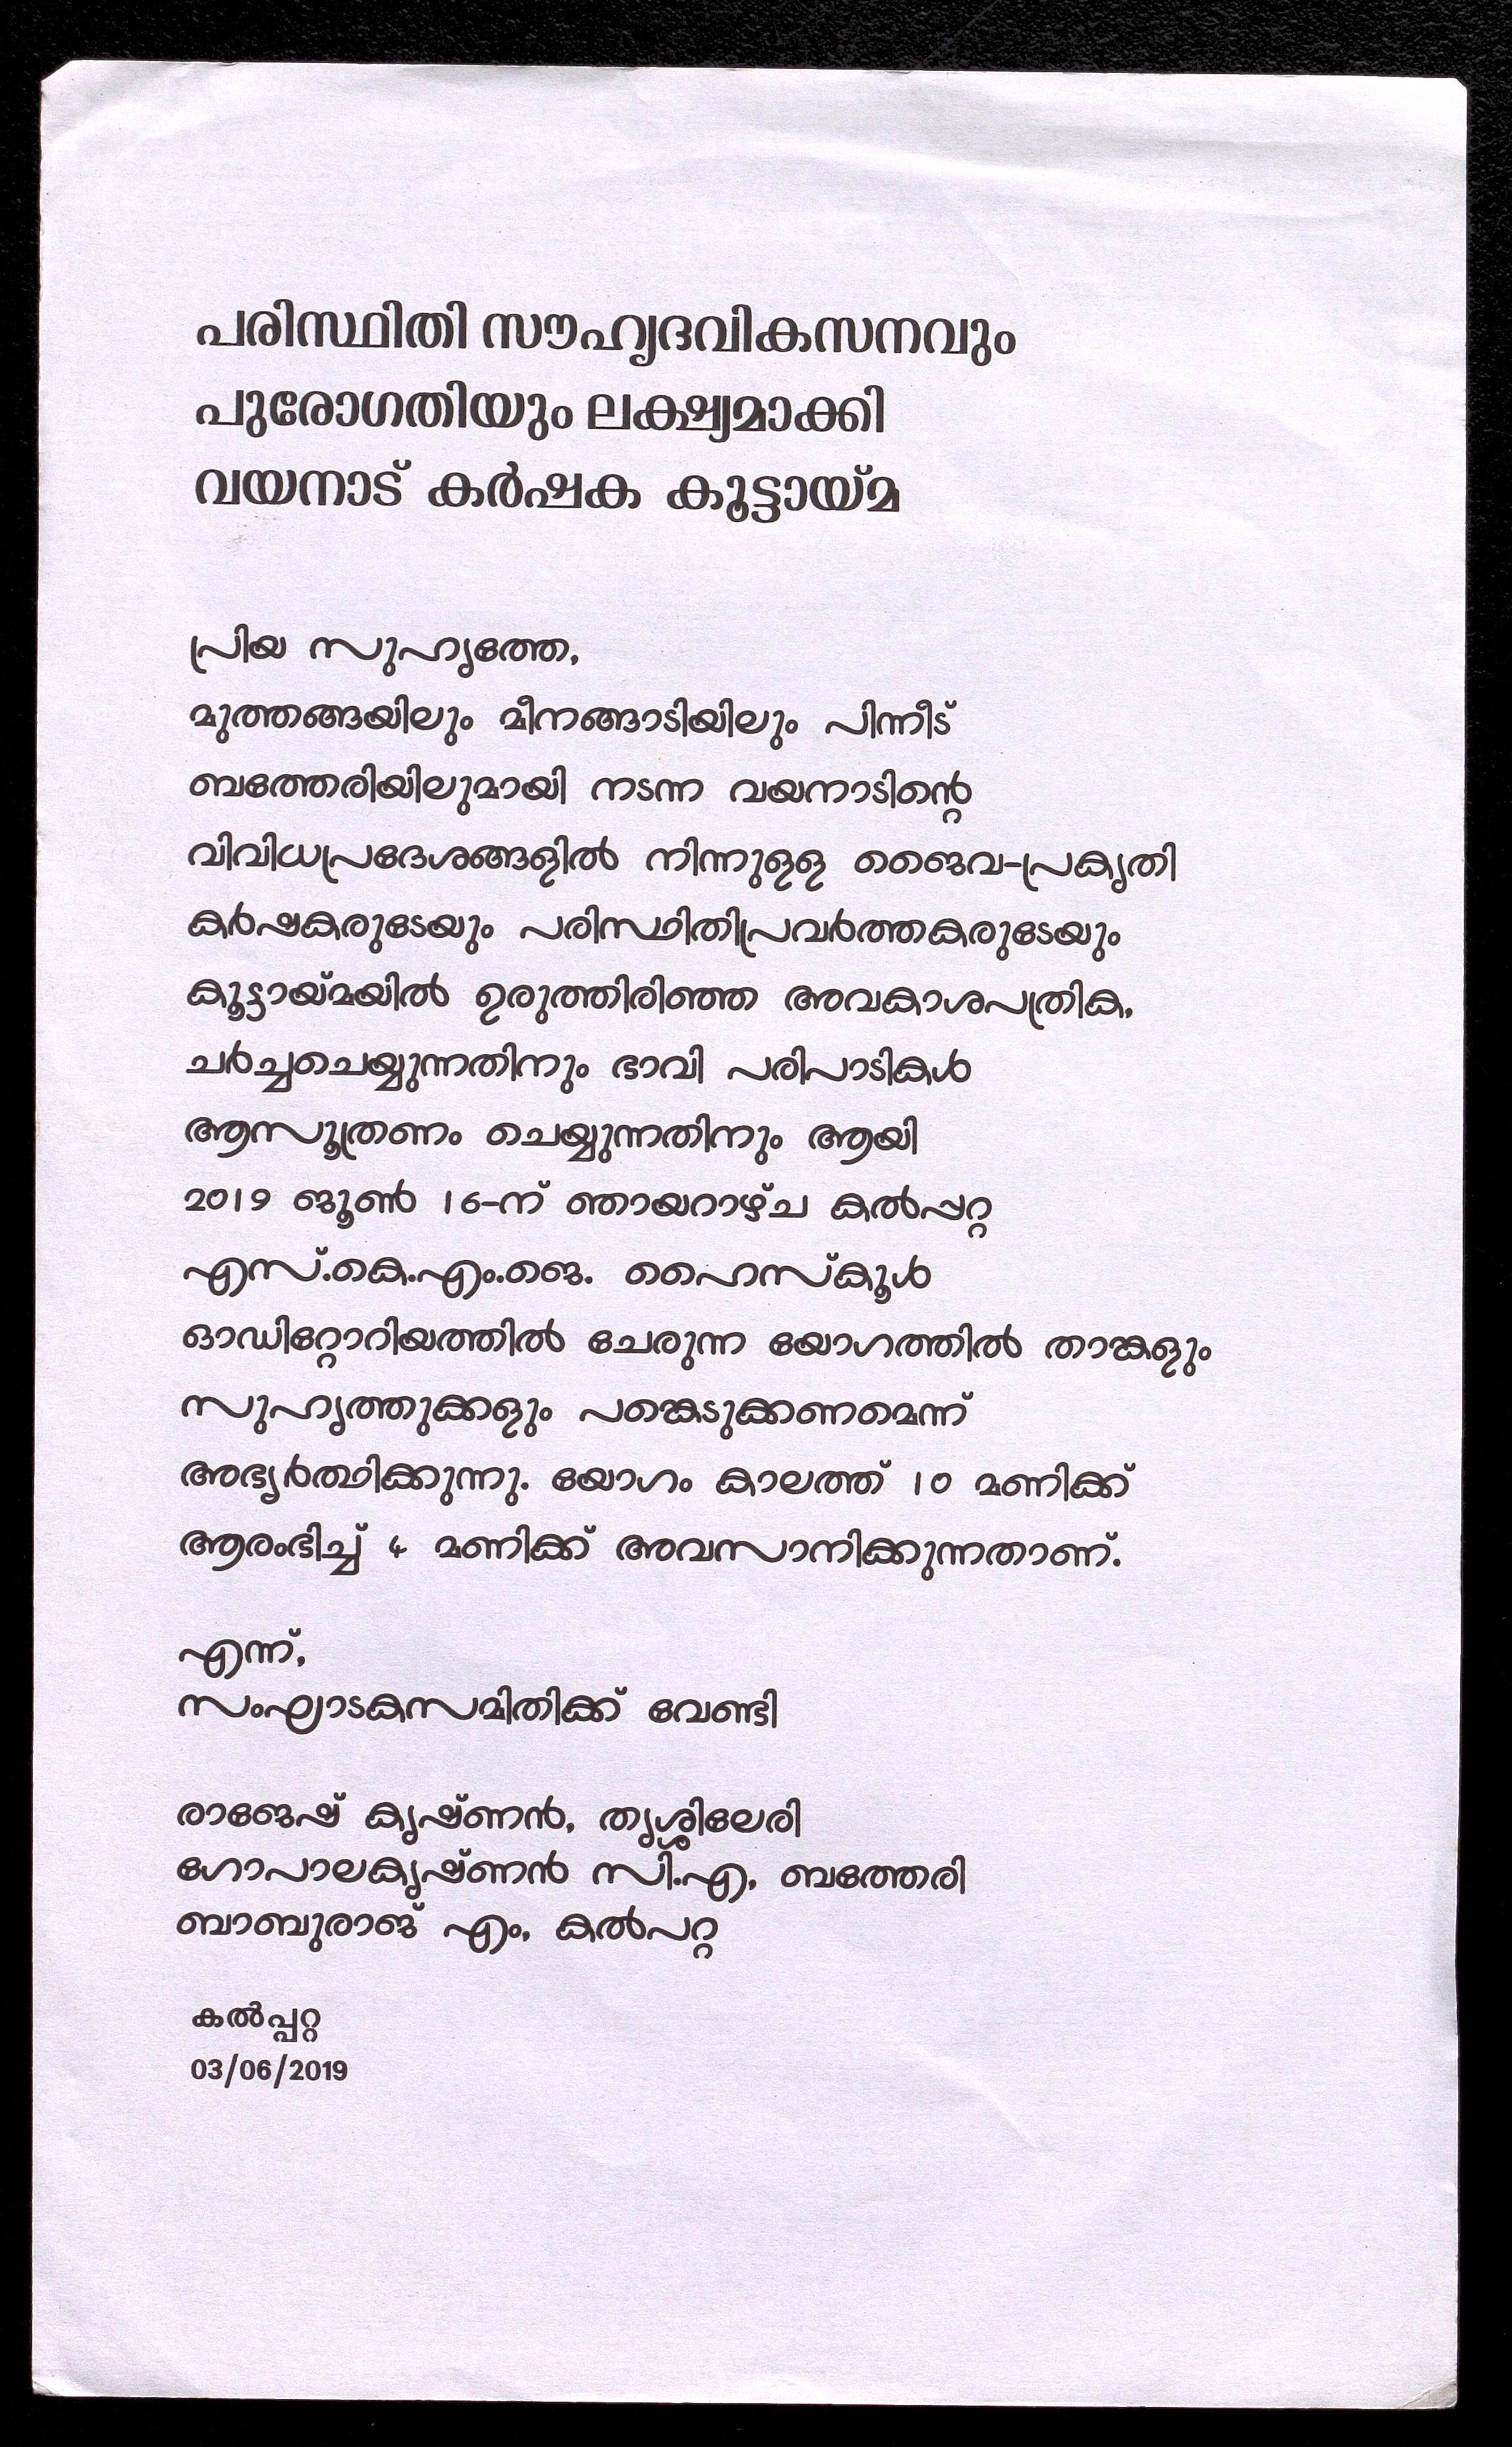 പരിസ്ഥിതി സൗഹൃദവികസനവും
പുരോഗതിയും ലക്ഷ്യമാക്കി
വയനാട് കർഷക കൂട്ടായ്മ
പ്രിയ സുഹൃത്തേ,
മുത്തങ്ങയിലും മീനങ്ങാടിയിലും പിന്നീട്
ബത്തേരിയിലുമായി നടന്ന വയനാടിന്റെ
വിവിധപ്രദേശങ്ങളിൽ നിന്നുള്ള ജൈവ-പ്രകൃതി
കർഷകരുടേയും പരിസ്ഥിതിപ്രവർത്തകരുടേയും
കൂട്ടായ്മയിൽ ഉരുത്തിരിഞ്ഞ അവകാശപത്രിക,
ചർച്ചചെയ്യുന്നതിനും ഭാവി പരിപാടികൾ
ആസൂത്രണം ചെയ്യുന്നതിനും ആയി
2019 ജൂൺ 16-ന് ഞായറാഴ്ച കൽപ്പറ്റ
എസ്.കെ.എം.ജെ. ഹൈസ്കൂൾ
ഓഡിറ്റോറിയത്തിൽ ചേരുന്ന യോഗത്തിൽ താങ്കളും
സുഹൃത്തുക്കളും പങ്കെടുക്കണമെന്ന്
അഭ്യർത്ഥിക്കുന്നു. യോഗം കാലത്ത് 10 മണിക്ക്
ആരംഭിച്ച് 4 മണിക്ക് അവസാനിക്കുന്നതാണ്.
എന്ന്,
സംഘാടകസമിതിക്ക് വേണ്ടി
രാജേഷ് കൃഷ്ണൻ, തൃശ്ശിലേരി
ഗോപാലകൃഷ്ണൻ സി.എ, ബത്തേരി
ബാബുരാജ് എം, കൽപറ്റ
കൽപ്പറ്റ
03/06/2019